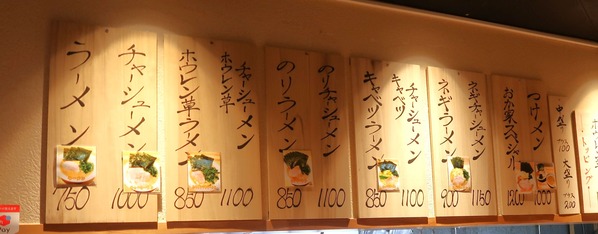 ラーメン
750
チャーシューメン
1000
ホウレン草ラーメン
850
ホウレン草
チャーシューメン
1100
のりラーメン
850
のりチャーシューメン
1100
キャベツラーメン
850
キャベツ
チャーシューメン
1100
ネギラーメン
900
ネギチャーシューメン
1150
おか家スペシャル
1200
つけメン
1000
中盛
100
大盛り
200
Pay